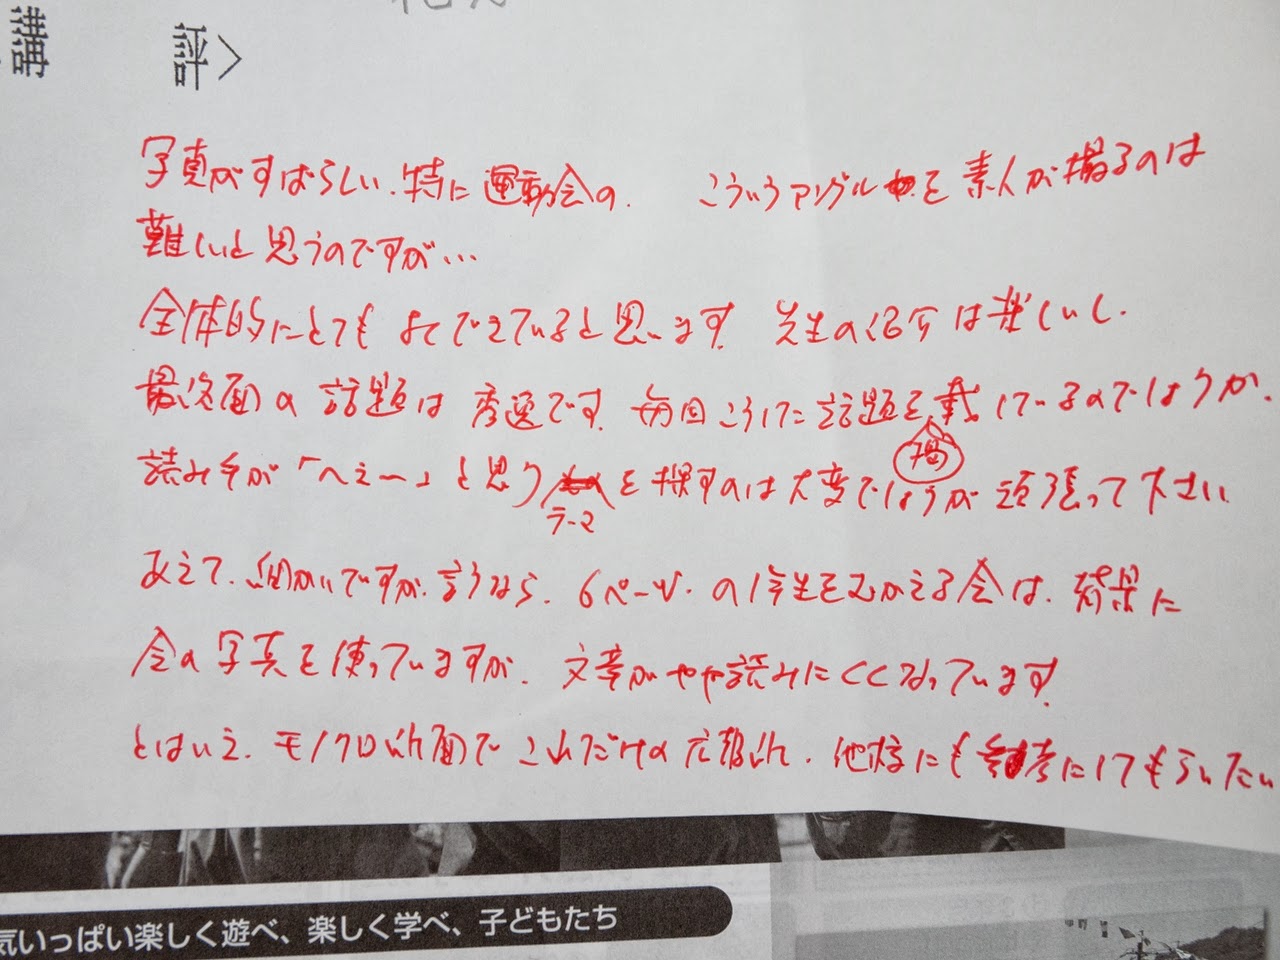 講評>
写真がすばらしい、特に運動会の、こういうアングルを素人が撮るのは
難しいと思うのですが…
全体的にとてもよくできていると思います。先生の紹介は楽しいし、
最終面の話題は秀逸です。毎回こうした話題を載しているのでしょうか。
掲
読み手が「へぇー」と思うを探すのは大変でしょうが頑張って下さい
テーマ
あえて、細かいですが、言うなら、6ページの1年生をむかえる会は、背景に
会の写真を使っていますが、文章がやや読みにくくなっています
とはいえ、モノクロ紙面でこれだけの広報は、他校にも参考にしてもらいたい
気いっぱい楽しく遊べ、楽しく学べ、子どもたち